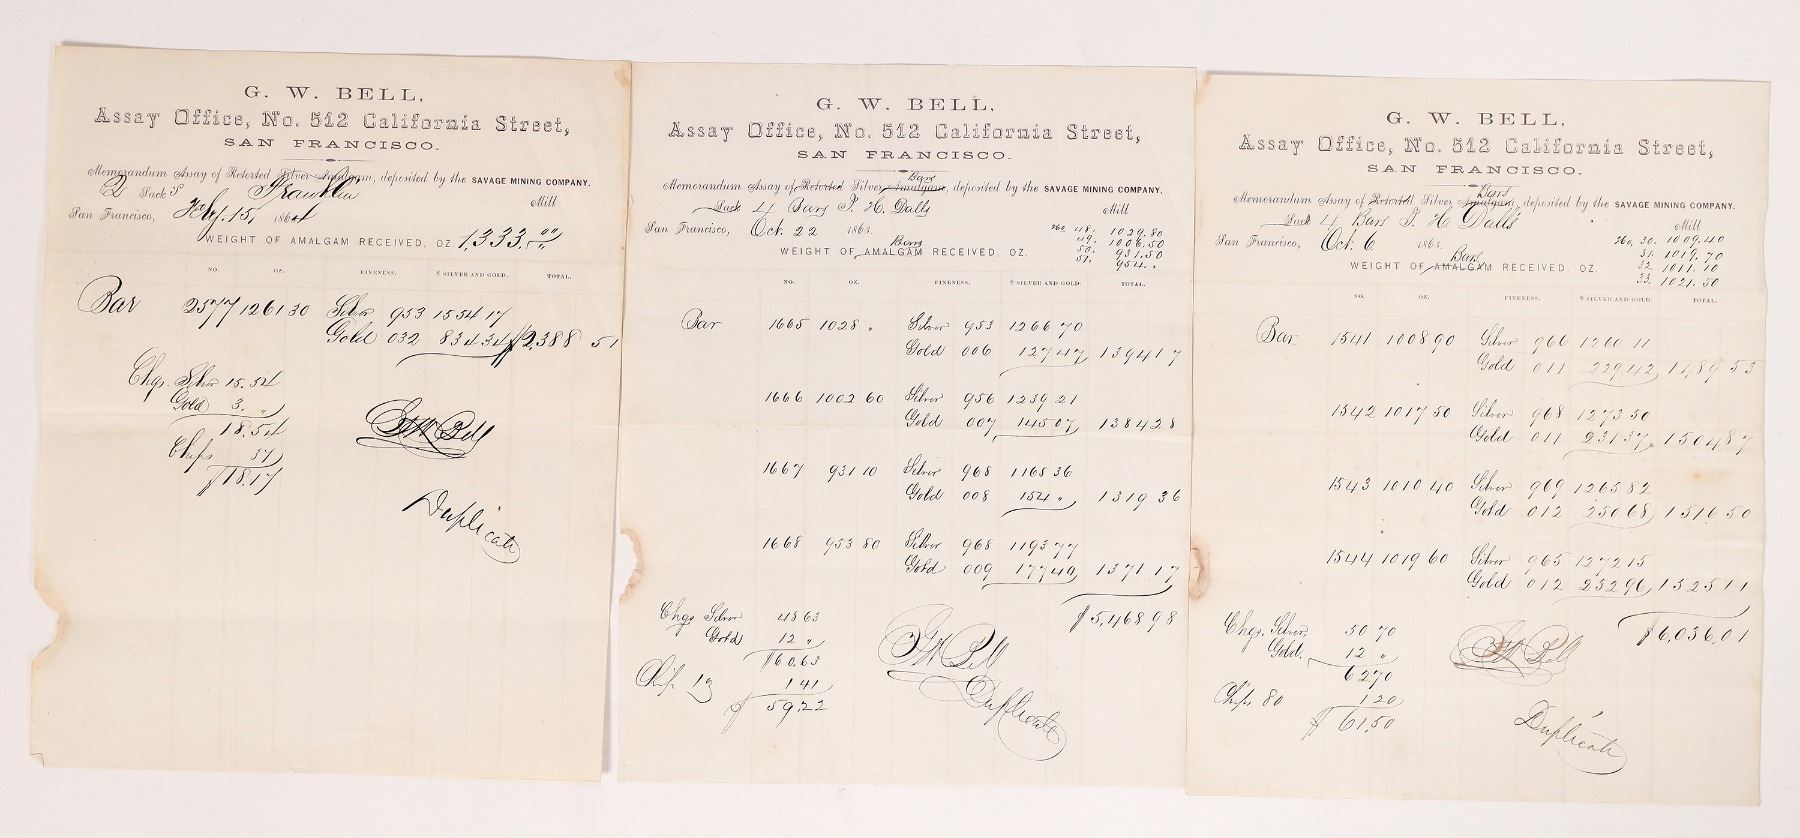 G. W. BELL,
Assay Office, No. 512 California Street,
SAN FRANCISCO.
Memorandum Assay of Retorted Silver Amalgam, deposited by the SAVAGE MINING COMPANY.
2 Sacks Franklin Mill
San Francisco, Feby. 15, 1864
WEIGHT OF AMALGAM RECEIVED, OZ. 1,333.00
NO. OZ. FINENESS. $ SILVER AND GOLD. TOTAL.
Bar 2577 1261 30 Silver 953 1554 17
Gold 032 834 34 $2,388 51
Chgs. Silver 15.54
Gold 3. "
18.54
Chips 37
$18.17
G W Bell
Duplicate
G. W. BELL,
Assay Office, No. 512 California Street,
SAN FRANCISCO.
Bars
Memorandum Assay of Retorted Silver Amalgam, deposited by the SAVAGE MINING COMPANY.
Sack 4 Bars J. H. Dalls Mill
San Francisco, Oct. 22 1863.
No. 48. 1029.80
49. 1006.50
50. 931.50
51. 954. "
Bars
WEIGHT OF AMALGAM RECEIVED, OZ.
NO. OZ. FINENESS. $ SILVER AND GOLD. TOTAL.
Bar 1665 1028 " Silver 953 1266 70
Gold 006 127 47 1394 17
1666 1002 60 Silver 956 1239 21
Gold 007 145 07 1384 28
1667 931 10 Silver 968 1165 36
Gold 008 154 " 1319 36
1668 953 80 Silver 968 1193 77
Gold 009 177 40 1371 17
$5,468 98
Chgs Silver 48 63
Gold 12 "
$60.63
Chips 1 41
$59.22
G W Bell
Duplicate
G. W. BELL,
Assay Office, No. 512 California Street,
SAN FRANCISCO.
Bars
Memorandum Assay of Retorted Silver Amalgam, deposited by the SAVAGE MINING COMPANY.
Sack 4 Bars J. H. Dall's Mill
San Francisco, Oct. 6 1863.
No. 30. 1009.40
31. 1019.70
32. 1011.10
33. 1021.50
Bars
WEIGHT OF AMALGAM RECEIVED, OZ.
NO. OZ. FINENESS. $ SILVER AND GOLD. TOTAL.
Bar. 1541 1008 90 Silver 966 1260 11
Gold 011 229 42 1489 53
1542 1017 50 Silver 968 1273 50
Gold 011 231 37 1504 87
1543 1010 40 Silver 969 1265 82
Gold 012 250 68 1516 50
1544 1019 60 Silver 965 1272 15
Gold 012 252 96 1525 11
$6,036.01
Chgs. Silver, 50 70
Gold. 12 "
62 70
Chips 80 1 20
$61.50
G W Bell
Duplicate